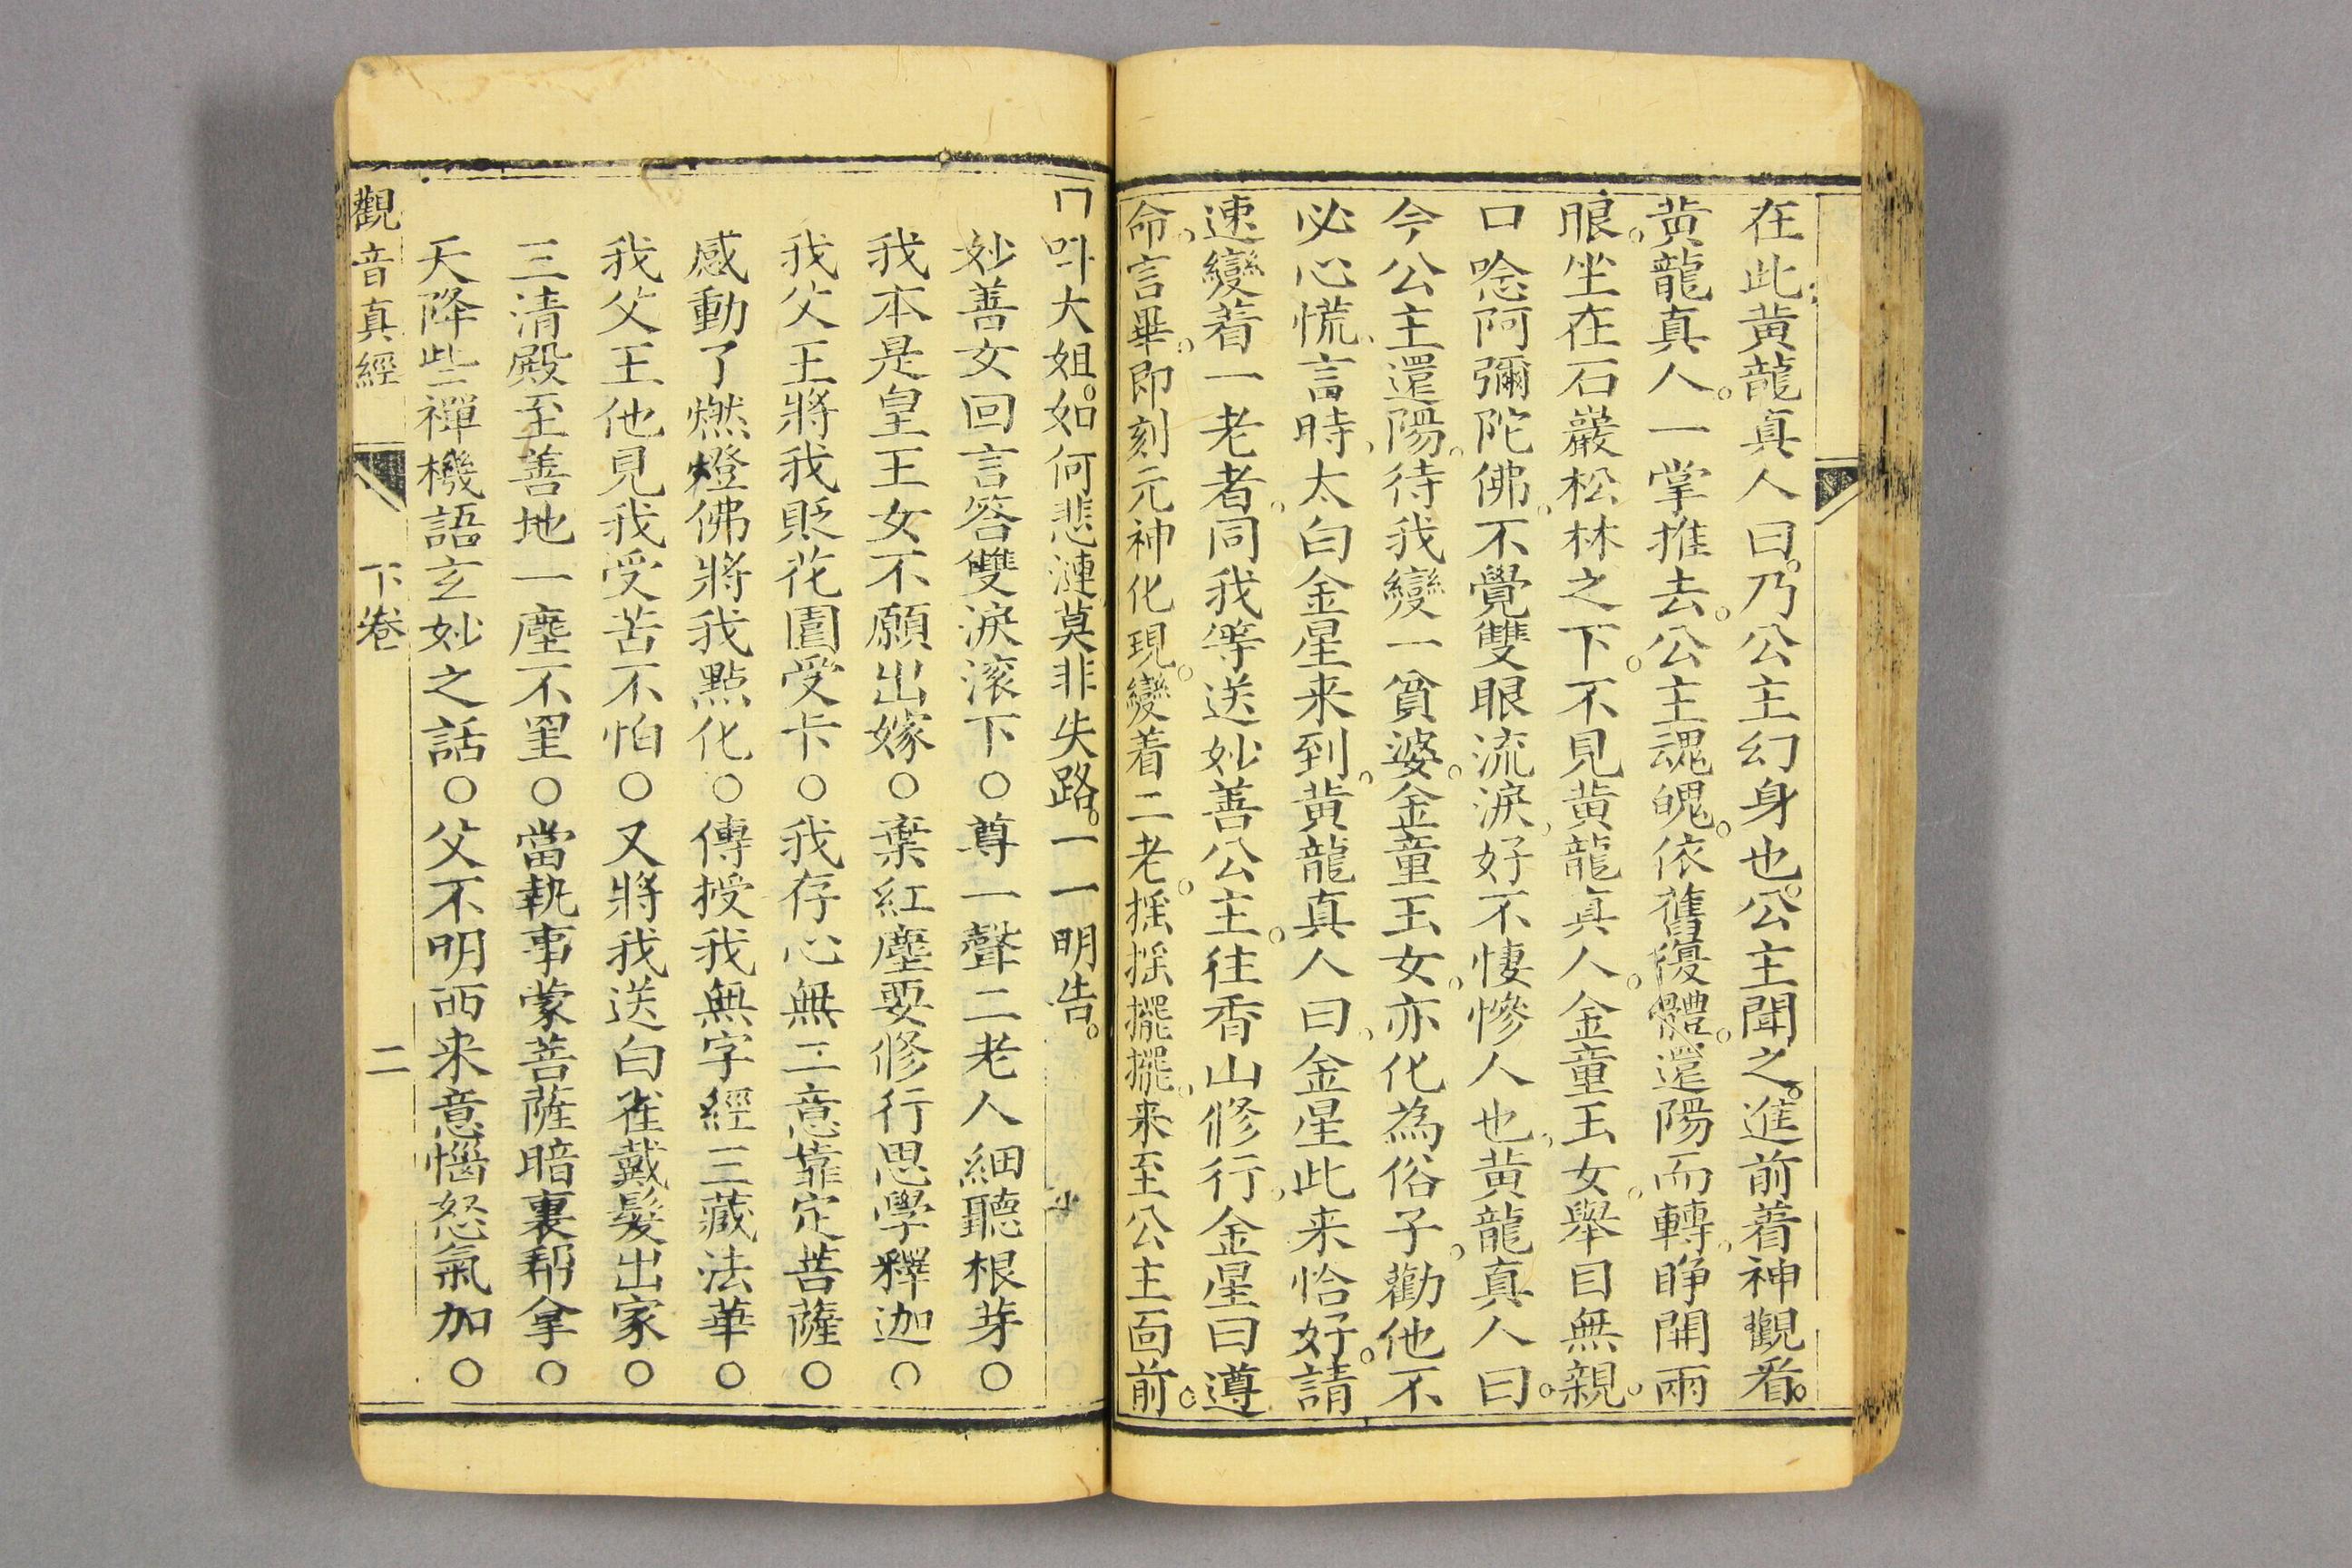 在此黄龍真人曰。乃公主幻身也。公主聞之。進前着神觀看。
黄龍真人。一掌推去。公主魂魄。依舊復體。還陽而轉。睁開兩
眼。坐在石巖松林之下。不見黄龍真人。金童玉女。舉目無親。
口唸阿彌陀佛。不覺雙眼流淚。好不悽慘人也。黄龍真人曰。
今公主還陽。待我變一貧婆。金童玉女。亦化為俗子。勸他不
必心慌。言時。太白金星来到。黄龍真人曰。金星此来恰好。請
速變着一老者。同我等送妙善公主。往香山修行。金星曰遵
命。言畢。即刻元神化現。變着二老。摇摇擺擺。来至公主面前。
口呌大姐。如何悲漣。莫非失路。一一明告。
妙善女回言答雙淚滚下○尊一聲二老人細聽根芽○
我本是皇王女不願出嫁○棄紅塵要修行思學釋迦○
我父王將我貶花園受卡○我存心無二意靠定菩薩○
感動了燃燈佛將我點化○傳授我無字經三藏法華○
我父王他見我受苦不怕○又將我送白雀戴髮出家○
三清殿至善地一塵不罣○當執事蒙菩薩暗裏幇拿○
天降些禪機語玄妙之話○父不明西来意惱怒氣加○
觀音真經 下卷 二